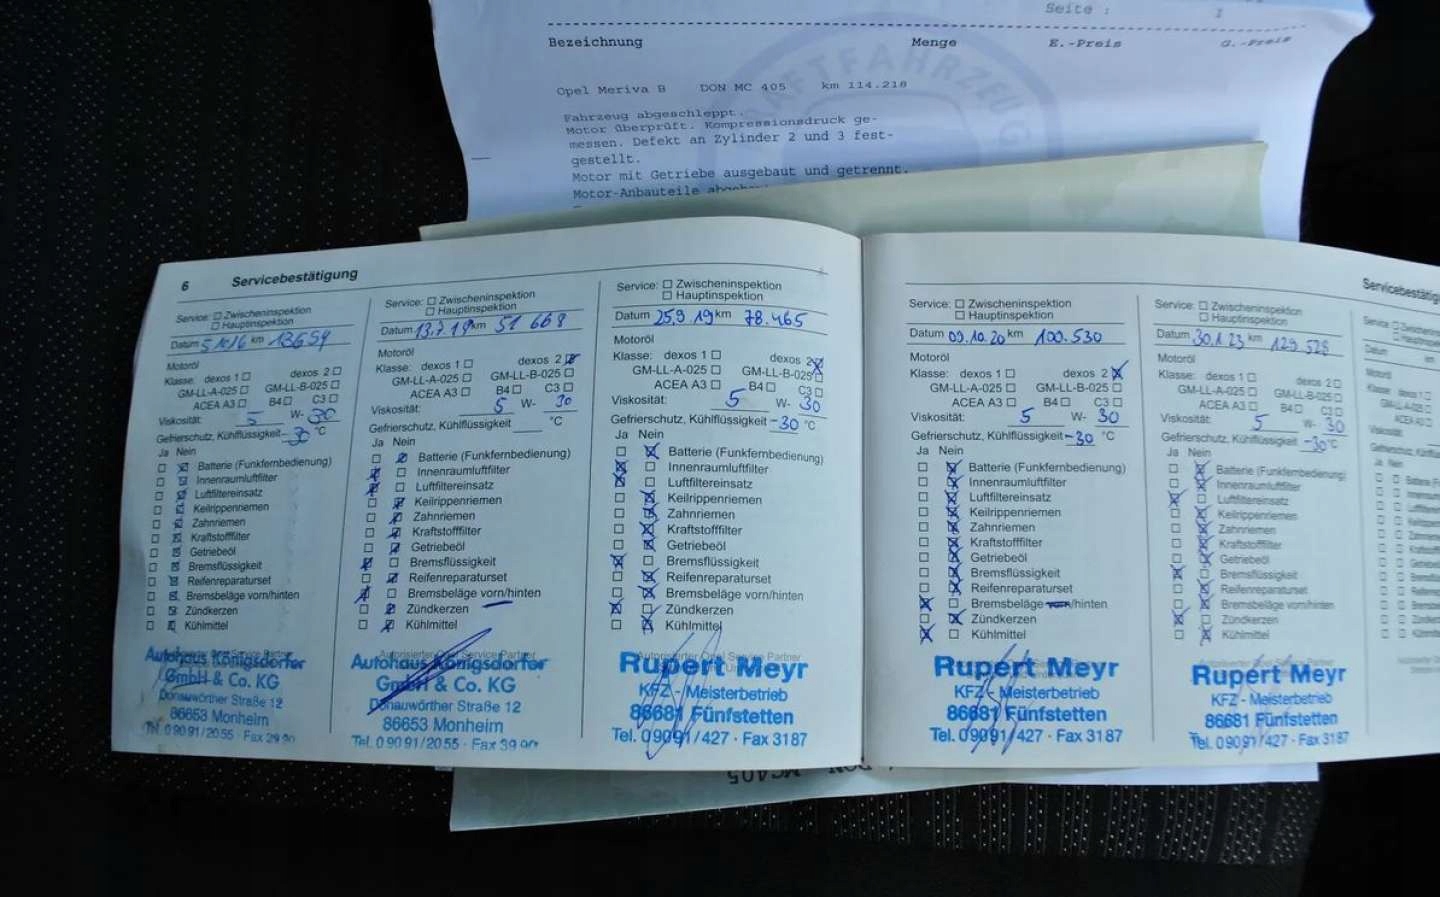 Seite : 1
Bezeichnung Menge E.-Preis G.-Preis
Opel Meriva B DON MC 405 km 114.218
Fahrzeug abgeschleppt.
Motor überprüft. Kompressionsdruck ge-
messen. Defekt an Zylinder 2 und 3 fest-
gestellt.
Motor mit Getriebe ausgebaut und getrennt.
Motor-Anbauteile
6 Servicebestätigung
Service: Zwischeninspektion
Hauptinspektion
Datum 5.10.16 km 13654
Motoröl
Klasse: dexos 1 dexos 2
GM-LL-A-025 GM-LL-B-025
ACEA A3 B4 C3
Viskosität: 5 W- 30
Gefrierschutz, Kühlflüssigkeit -30 °C
Ja Nein
Batterie (Funkfernbedienung)
Innenraumluftfilter
Luftfiltereinsatz
Keilrippenriemen
Zahnriemen
Kraftstofffilter
Getriebeöl
Bremsflüssigkeit
Reifenreparaturset
Bremsbeläge vorn/hinten
Zündkerzen
Kühlmittel
Autohaus Königsdorfer
GmbH & Co. KG
Donauwörther Straße 12
86653 Monheim
Tel. 09091/2055 · Fax 39 90
Service: Zwischeninspektion
Hauptinspektion
Datum 13.7.18 km 51 668
Motoröl
Klasse: dexos 1 dexos 2
GM-LL-A-025 GM-LL-B-025
ACEA A3 B4 C3
Viskosität: 5 W- 30
Gefrierschutz, Kühlflüssigkeit °C
Ja Nein
Batterie (Funkfernbedienung)
Innenraumluftfilter
Luftfiltereinsatz
Keilrippenriemen
Zahnriemen
Kraftstofffilter
Getriebeöl
Bremsflüssigkeit
Reifenreparaturset
Bremsbeläge vorn/hinten
Zündkerzen
Kühlmittel
Autorisierter Opel Service Partner
Autohaus Königsdorfer
GmbH & Co. KG
Donauwörther Straße 12
86653 Monheim
Tel. 09091/2055 · Fax 39 90
Service: Zwischeninspektion
Hauptinspektion
Datum 25.9.19 km 78.465
Motoröl
Klasse: dexos 1 dexos 2
GM-LL-A-025 GM-LL-B-025
ACEA A3 B4 C3
Viskosität: 5 W- 30
Gefrierschutz, Kühlflüssigkeit -30 °C
Ja Nein
Batterie (Funkfernbedienung)
Innenraumluftfilter
Luftfiltereinsatz
Keilrippenriemen
Zahnriemen
Kraftstofffilter
Getriebeöl
Bremsflüssigkeit
Reifenreparaturset
Bremsbeläge vorn/hinten
Zündkerzen
Kühlmittel
Autorisierter Opel Service Partner
Rupert Meyr
KFZ - Meisterbetrieb
86681 Fünfstetten
Tel. 09091/427 · Fax 3187
Servicebestätig
Service: Zwischeninspektion
Hauptinspektion
Datum 09.10.20 km 100.530
Motoröl
Klasse: dexos 1 dexos 2
GM-LL-A-025 GM-LL-B-025
ACEA A3 B4 C3
Viskosität: 5 W- 30
Gefrierschutz, Kühlflüssigkeit -30 °C
Ja Nein
Batterie (Funkfernbedienung)
Innenraumluftfilter
Luftfiltereinsatz
Keilrippenriemen
Zahnriemen
Kraftstofffilter
Getriebeöl
Bremsflüssigkeit
Reifenreparaturset
Bremsbeläge vorn/hinten
Zündkerzen
Kühlmittel
Rupert Meyr
KFZ - Meisterbetrieb
86681 Fünfstetten
Tel. 09091/427 · Fax 3187
Service: Zwischeninspektion
Hauptinspektion
Datum 30.1.23 km 129.528
Motoröl
Klasse: dexos 1 dexos 2
GM-LL-A-025 GM-LL-B-025
ACEA A3 B4 C3
Viskosität: 5 W- 30
Gefrierschutz, Kühlflüssigkeit -30 °C
Ja Nein
Batterie (Funkfernbedienung)
Innenraumluftfilter
Luftfiltereinsatz
Keilrippenriemen
Zahnriemen
Kraftstofffilter
Getriebeöl
Bremsflüssigkeit
Reifenreparaturset
Bremsbeläge vorn/hinten
Zündkerzen
Kühlmittel
Rupert Meyr
KFZ - Meisterbetrieb
86681 Fünfstetten
Tel. 09091/427 · Fax 3187
Datum km
Motoröl
Ja Nein
DON MC405